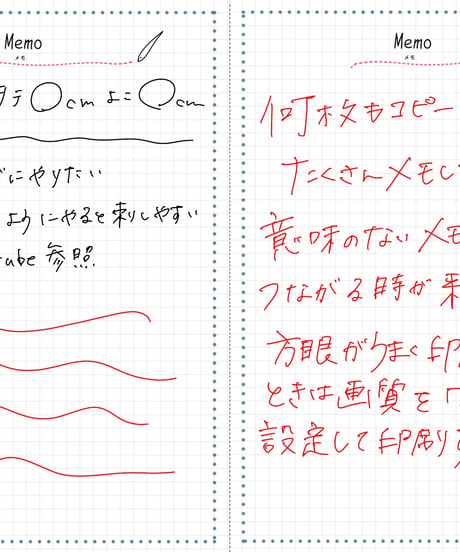 Memo
メモ
タテ○cm よこ○cm
にやりたい
ようにやると刺しやすい
ube 参照
Memo
メモ
何枚もコピー
たくさんメモし
意味のないメモ
つながる時が来
方眼がうまく印
ときは画質を
設定して印刷